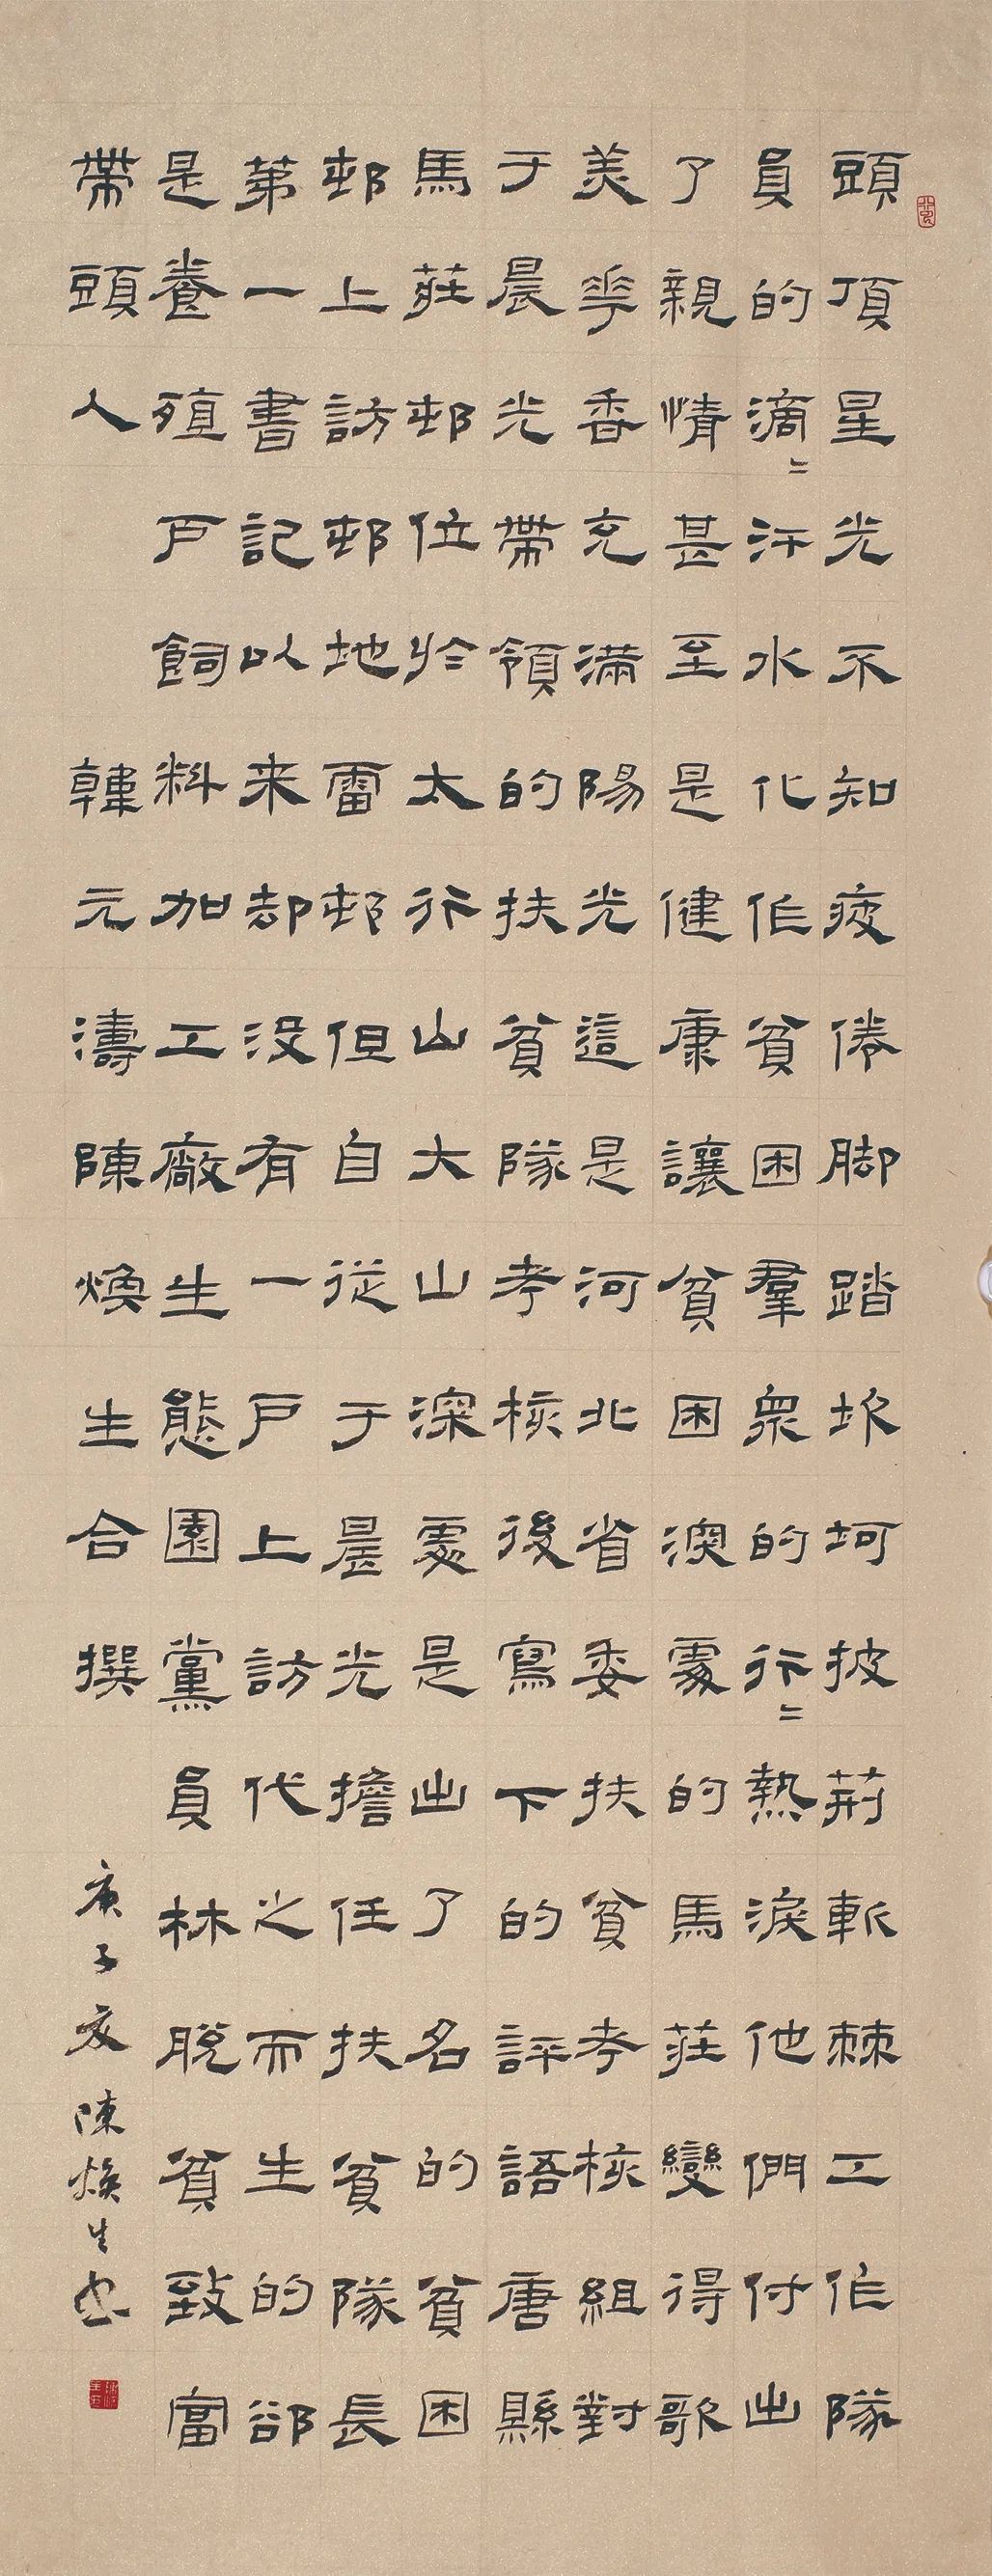 頭頂星光不知疲倦脚踏坎坷披荊斬棘工作隊
員的滴=汗水化作貧困羣衆的行=熱淚他們付出
了親情甚至是健康讓貧困澳處的馬莊變得歌
美華香充滿陽光這是河北省委扶貧考核組對
于晨光帶領的扶貧隊考核後寫下的評語唐縣
馬莊邨位於太行山大山深處是出了名的貧困
邨上訪邨地雷邨但自從于晨光擔任扶貧隊長
第一書記以来却没有一戶上訪代之而生的郤
是養殖戶飼料加工廠生態園黨員林脱貧致富
帶頭人 韓元濤陳煥生合撰
庚子夏陳煥生書